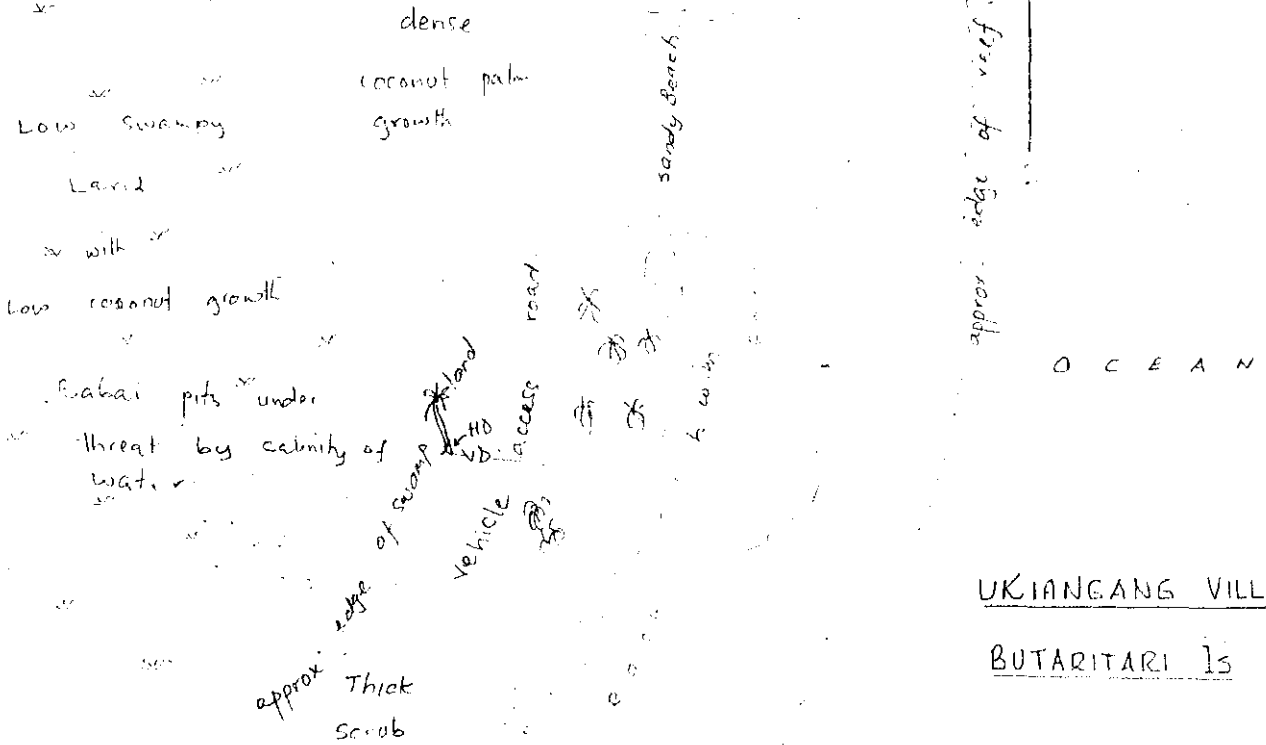 dense
coconut palm
growth
Low Swampy
Land
with
Low coconut growth
Babai pits under
threat by calinity of
water
approx edge of swamp land
HD
VD
vehicle access road
Thick
Scrub
sandy Beach
h w m
approx edge of reef
OCEAN
UKIANGANG VILL
BUTARITARI Is